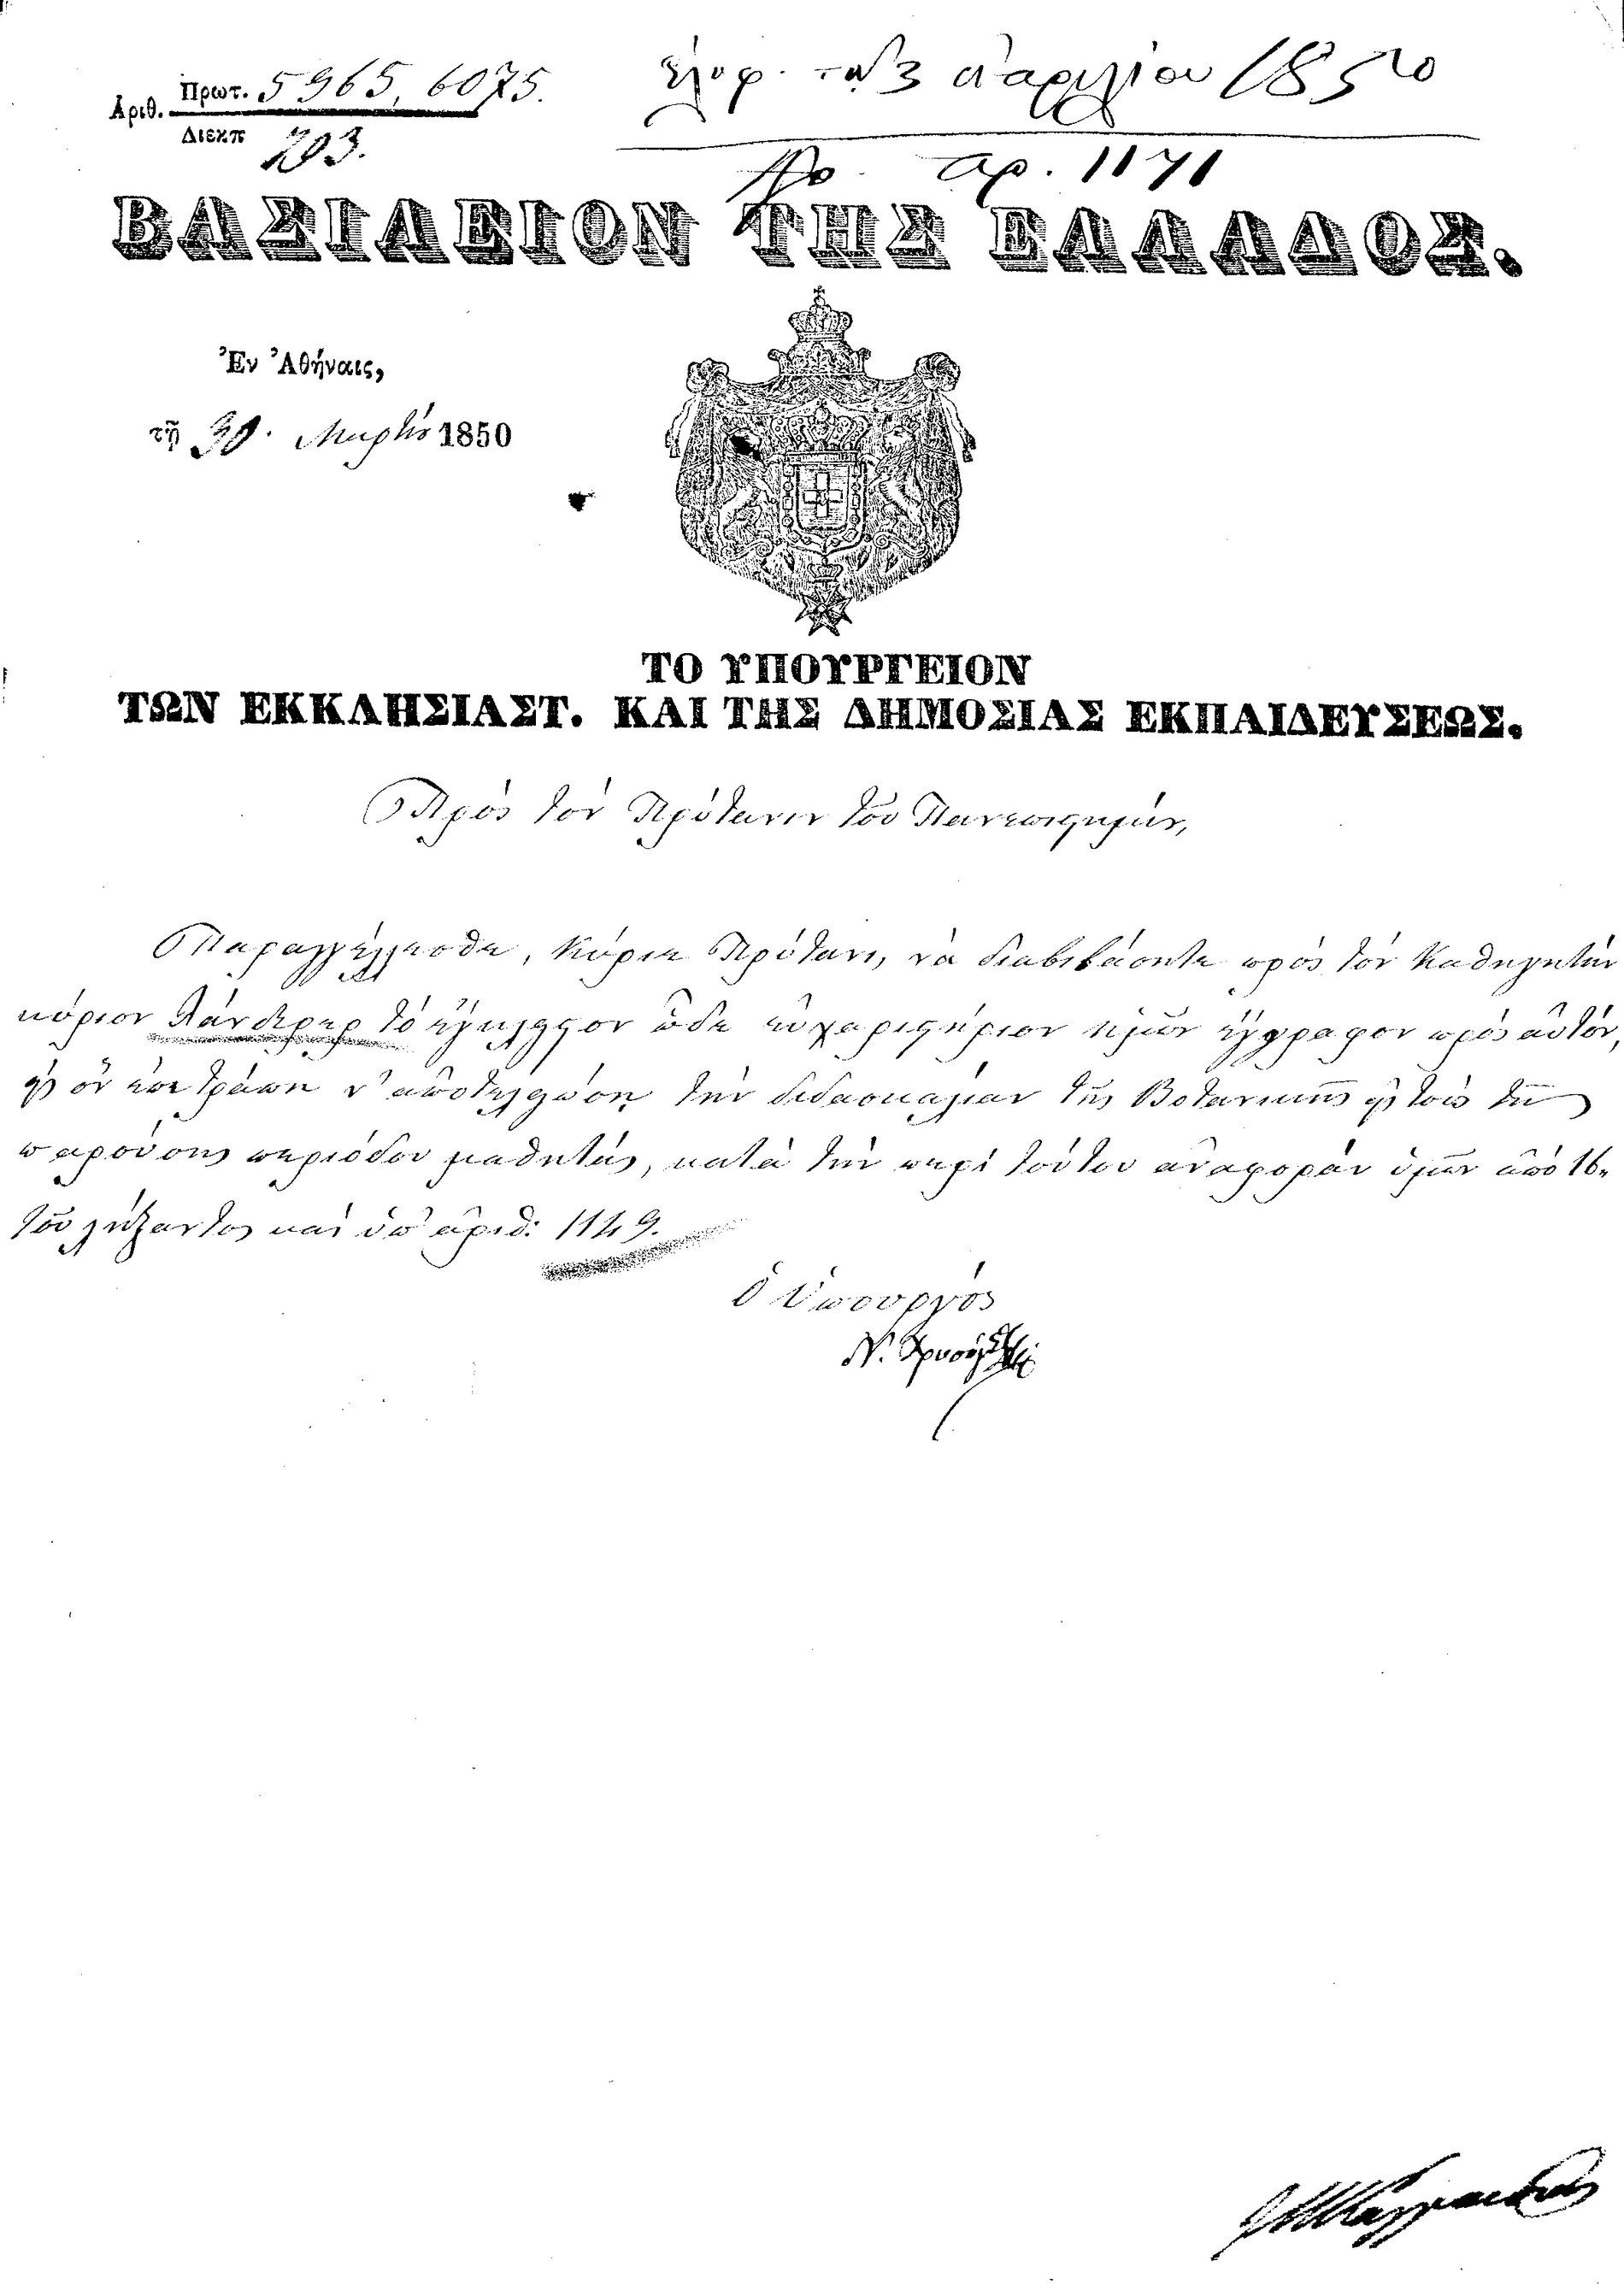 Ἀριθ. Πρωτ. 5965, 6075.
Διεκπ 293.
ἐλήφ. τῇ 3 ἀπριλίου 1850
ἀρ. 1171
ΒΑΣΙΛΕΙΟΝ ΤΗΣ ΕΛΛΑΔΟΣ.
Ἐν Ἀθήναις,
τῇ 30. Μαρτίου 1850
ΤΟ ΥΠΟΥΡΓΕΙΟΝ
ΤΩΝ ΕΚΚΛΗΣΙΑΣΤ. ΚΑΙ ΤΗΣ ΔΗΜΟΣΙΑΣ ΕΚΠΑΙΔΕΥΣΕΩΣ.
Πρὸς τὸν Πρύτανιν τοῦ Πανεπιστημίου,
Παραγγέλλεσθε, Κύριε Πρύτανι, νὰ διαβιβάσητε πρὸς τὸν Καθηγητὴν
κύριον Λάνδερερ τὸ ἔγκλειστον ὧδε εὐχαριστήριον ἡμῶν ἔγγραφον πρὸς αὐτόν,
ἐφ' ὃν ἐπετράπη ν' ἀποτελειώσῃ τὴν διδασκαλίαν τῆς Βοτανικῆς εἰς τοὺς τῆς
παρούσης περιόδου μαθητάς, κατὰ τὴν περὶ τούτου ἀναφορὰν ὑμῶν ἀπὸ 16.
τοῦ λήξαντος καὶ ὑπ' ἀριθ: 1149.
Ὁ Ὑπουργὸς